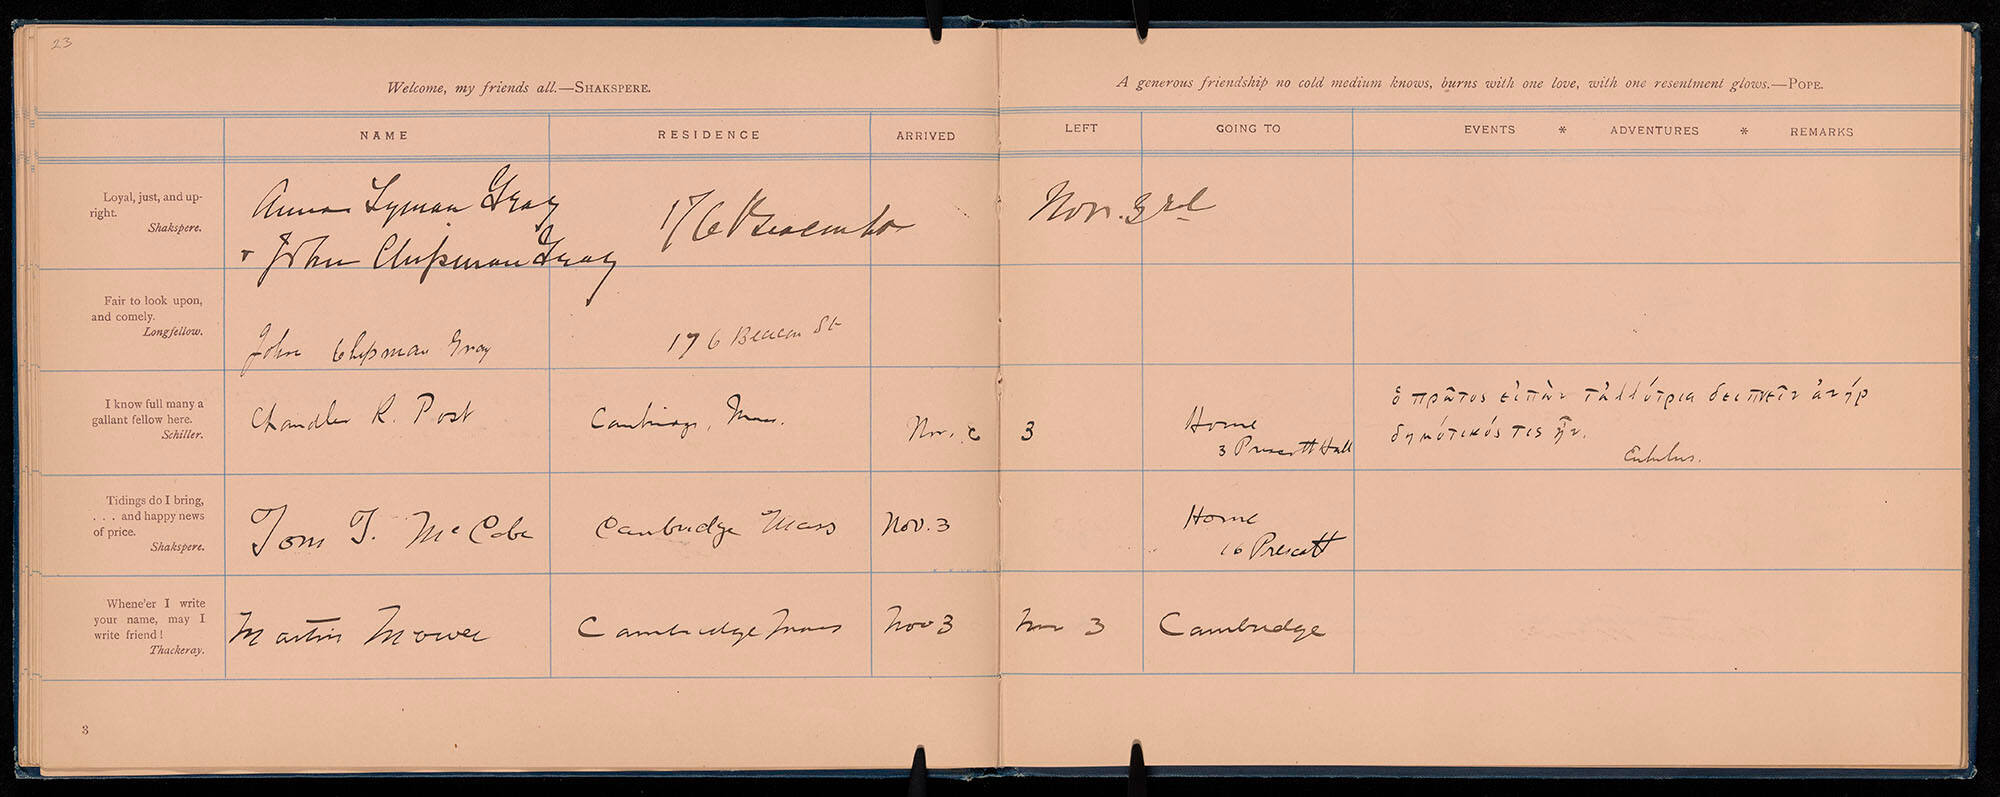 23
Welcome, my friends all.—SHAKSPERE.
A generous friendship no cold medium knows, burns with one love, with one resentment glows.—POPE.
NAME RESIDENCE ARRIVED LEFT GOING TO EVENTS * ADVENTURES * REMARKS
Loyal, just, and up-
right.
Shakspere.
Anna Lyman Gray
John Chipman Gray
176 Beacon St
Nov. 3rd
Fair to look upon,
and comely.
Longfellow.
John Chipman Gray
176 Beacon St
I know full many a
gallant fellow here.
Schiller.
Chandler R. Post
Cambridge, Mass.
Nov.
3
Home
3 Prescott Hall
ὁ πρῶτος εἰπὼν τἀλλότρια δειπνεῖν ἀνήρ
δημότικός τις ἦν.
Eubulus.
Tidings do I bring,
. . . and happy news
of price.
Shakspere.
Tom T. McCabe
Cambridge Mass
Nov. 3
Home
16 Prescott
Whene'er I write
your name, may I
write friend!
Thackeray.
Martin Mower
Cambridge Mass
Nov 3
Nov 3
Cambridge
3